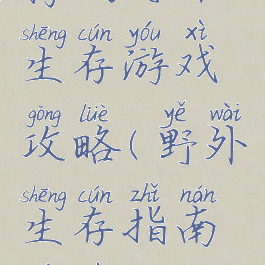 shēng cún yóu xì
生存游戏
gōng lüè yě wài
攻略(野外
shēng cún zhǐ nán
生存指南